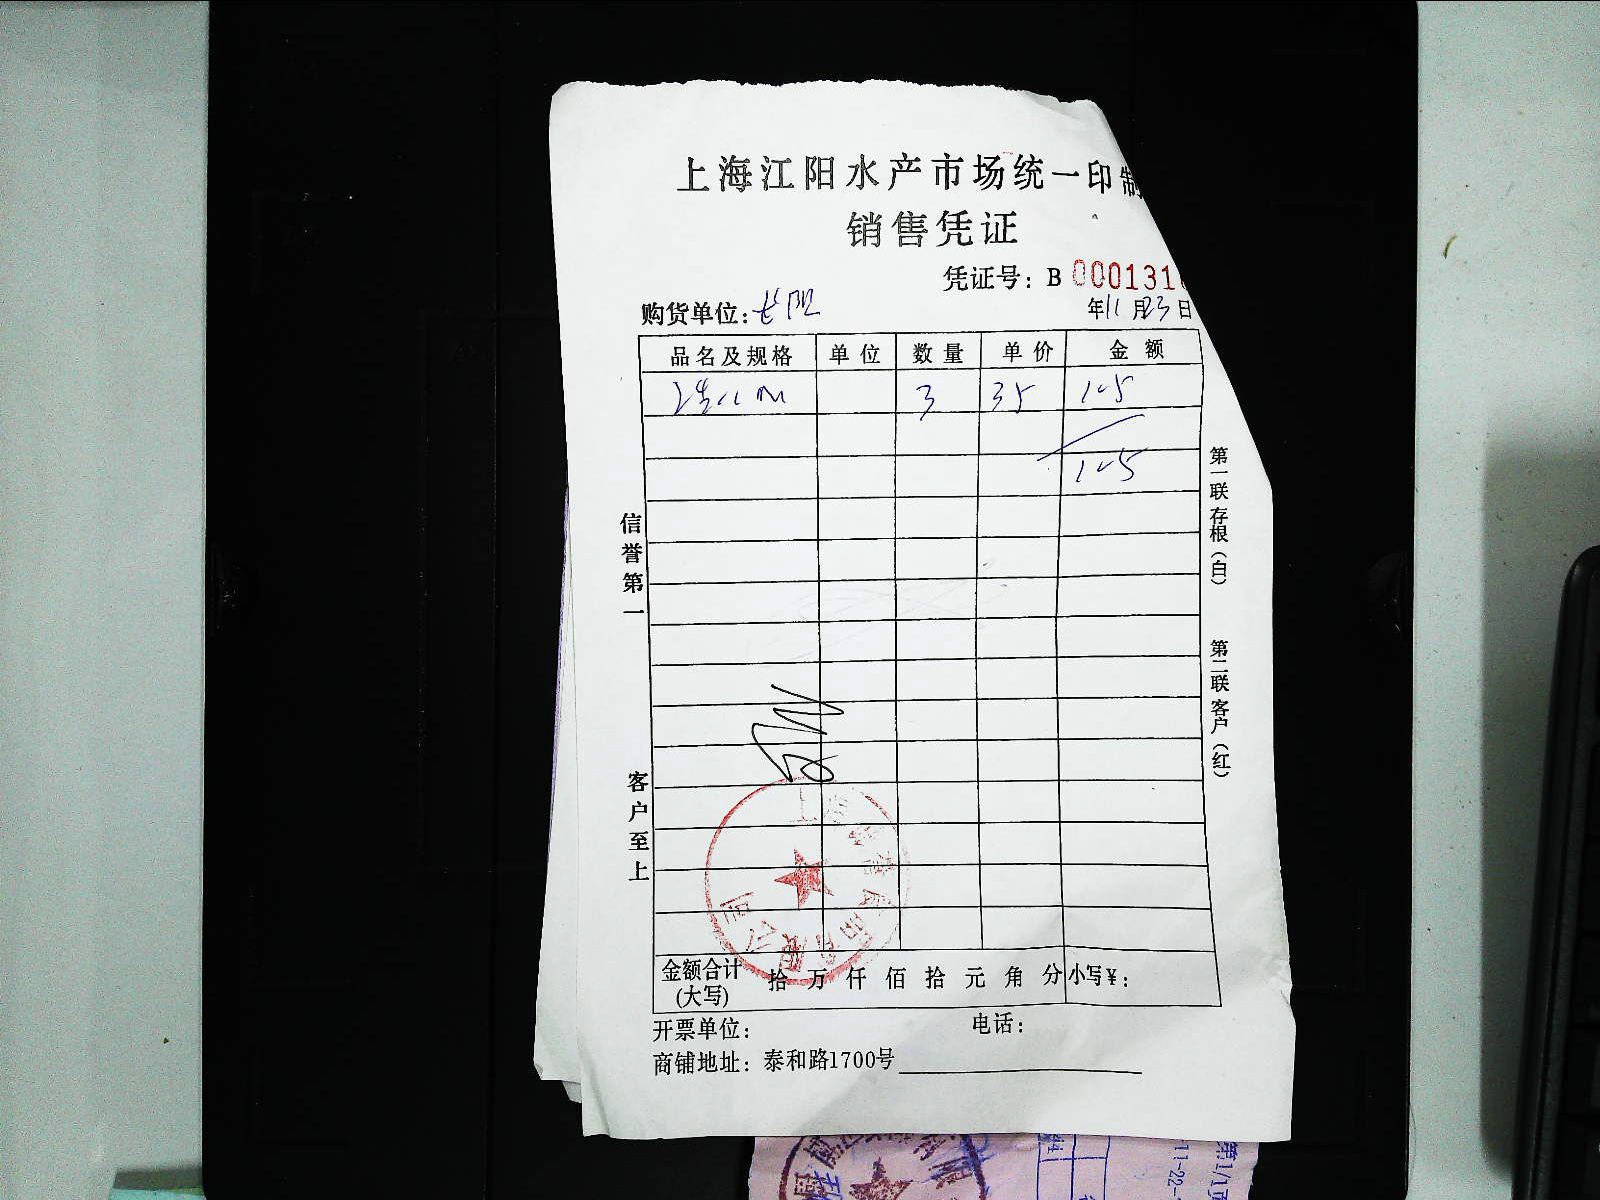 上海江阳水产市场统一印制
销售凭证
凭证号：B 000131
购货单位：长阳
年11月23日
品名及规格 单位 数量 单价 金额
3 35 105
105
信誉第一
客户至上
第一联存根（白）
第二联客户（红）
金额合计（大写） 拾 万 仟 佰 拾 元 角 分 小写¥：
开票单位： 电话：
商铺地址：泰和路1700号
第1/1页
11-22-